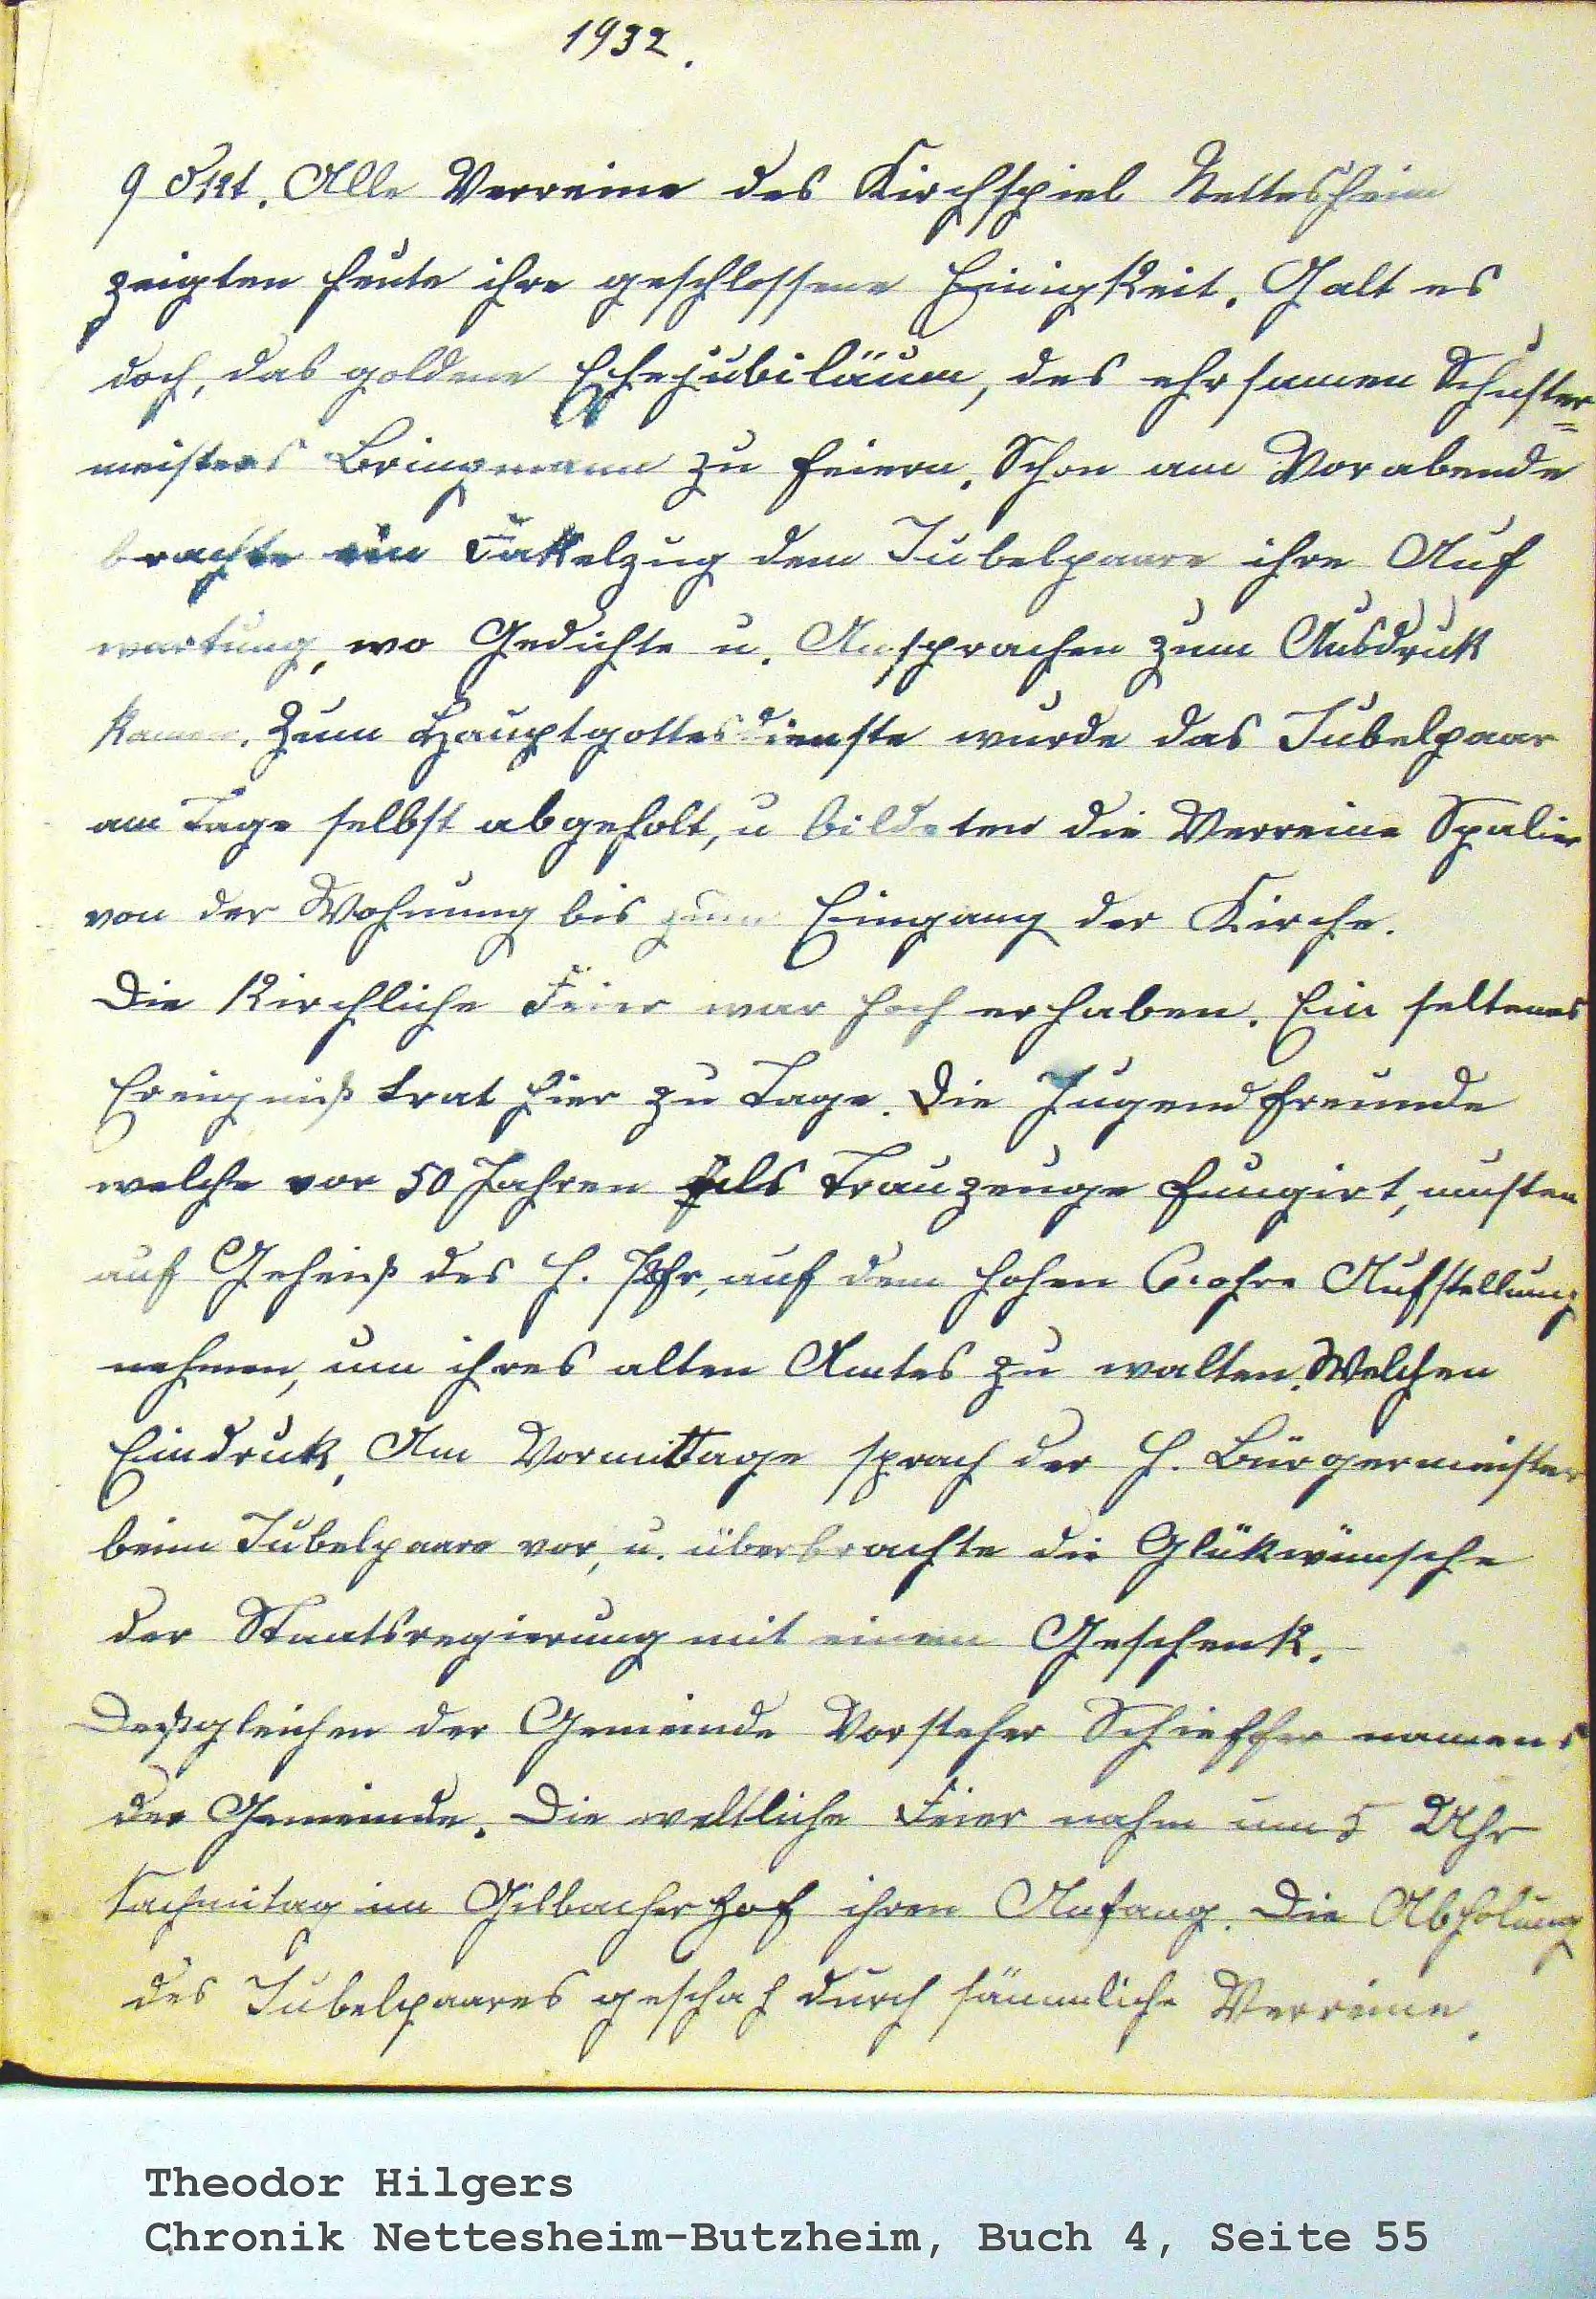 1932.
9 Okt. Alle Verreine des Kirchspiel Nettesheim
zeigten heute ihre geschlossene Einigkeit. Galt es
doch, das goldene Ehejubiläum, des ehrsamen Schuster=
meisters Bringmann zu feiern. Schon am Vorabende
brachte ein Fakelzug dem Jubelpaare ihre Auf
wartung, wo Gedichte u. Ansprachen zum Ausdruk
kamen. Zum Hauptgottesdienste wurde das Jubelpaar
am Tage selbst abgeholt, u bildeten die Verreine Spalier
von der Wohnung bis zum Eingang der Kirche.
Die Kirchliche Feier war hoch erhaben. Ein seltenes
Ereigniß trat hier zu Tage. Die Jugendfreunde
welche vor 50 Jahren als Trauzeuge fungirt, musten
auf Geheiß des H. Pfr, auf dem hohen Chohre Aufstellung
nehmen, um ihres alten Amtes zu walten. Welchen
Eindruk. Am Vormittage sprach der H. Bürgermeister
beim Jubelpaare vor, u. überbrachte die Glükwünsche
der Staatsregierung mit einem Geschenk.
Deßgleichen der Gemeinde Vorsteher Schieffer namens
der Gemeinde. Die weltliche Feier nahm um 5 Uhr
Nachmitag im Gilbacher Hof ihren Anfang. Die Abholung
des Jubelpaares geschah durch sämmliche Verreine.
Theodor Hilgers
Chronik Nettesheim-Butzheim, Buch 4, Seite 55